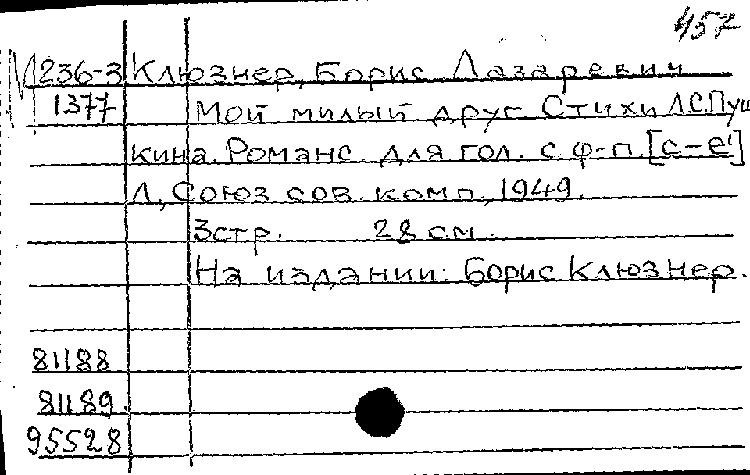 457
М 236-3 Клюзнер, Борис Лазаревич
1377 Мой милый друг. Стихи А.С.Пуш
кина. Романс. для гол. с ф-п. [c-e¹]
Л., Союз сов. комп., 1949.
3стр. 28 см.
На издании: Борис Клюзнер.
81188
81189
95528